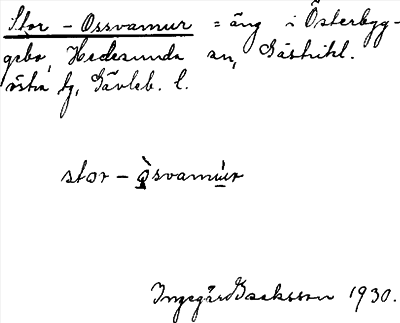 Stor - Ossvamur = äng i Österbyg-
gebo, Hedesunda sn, Gästrikl.
östra tg, Gävleb. l.
stor - òsvamùr
Ingegärd Isaksson 1930.